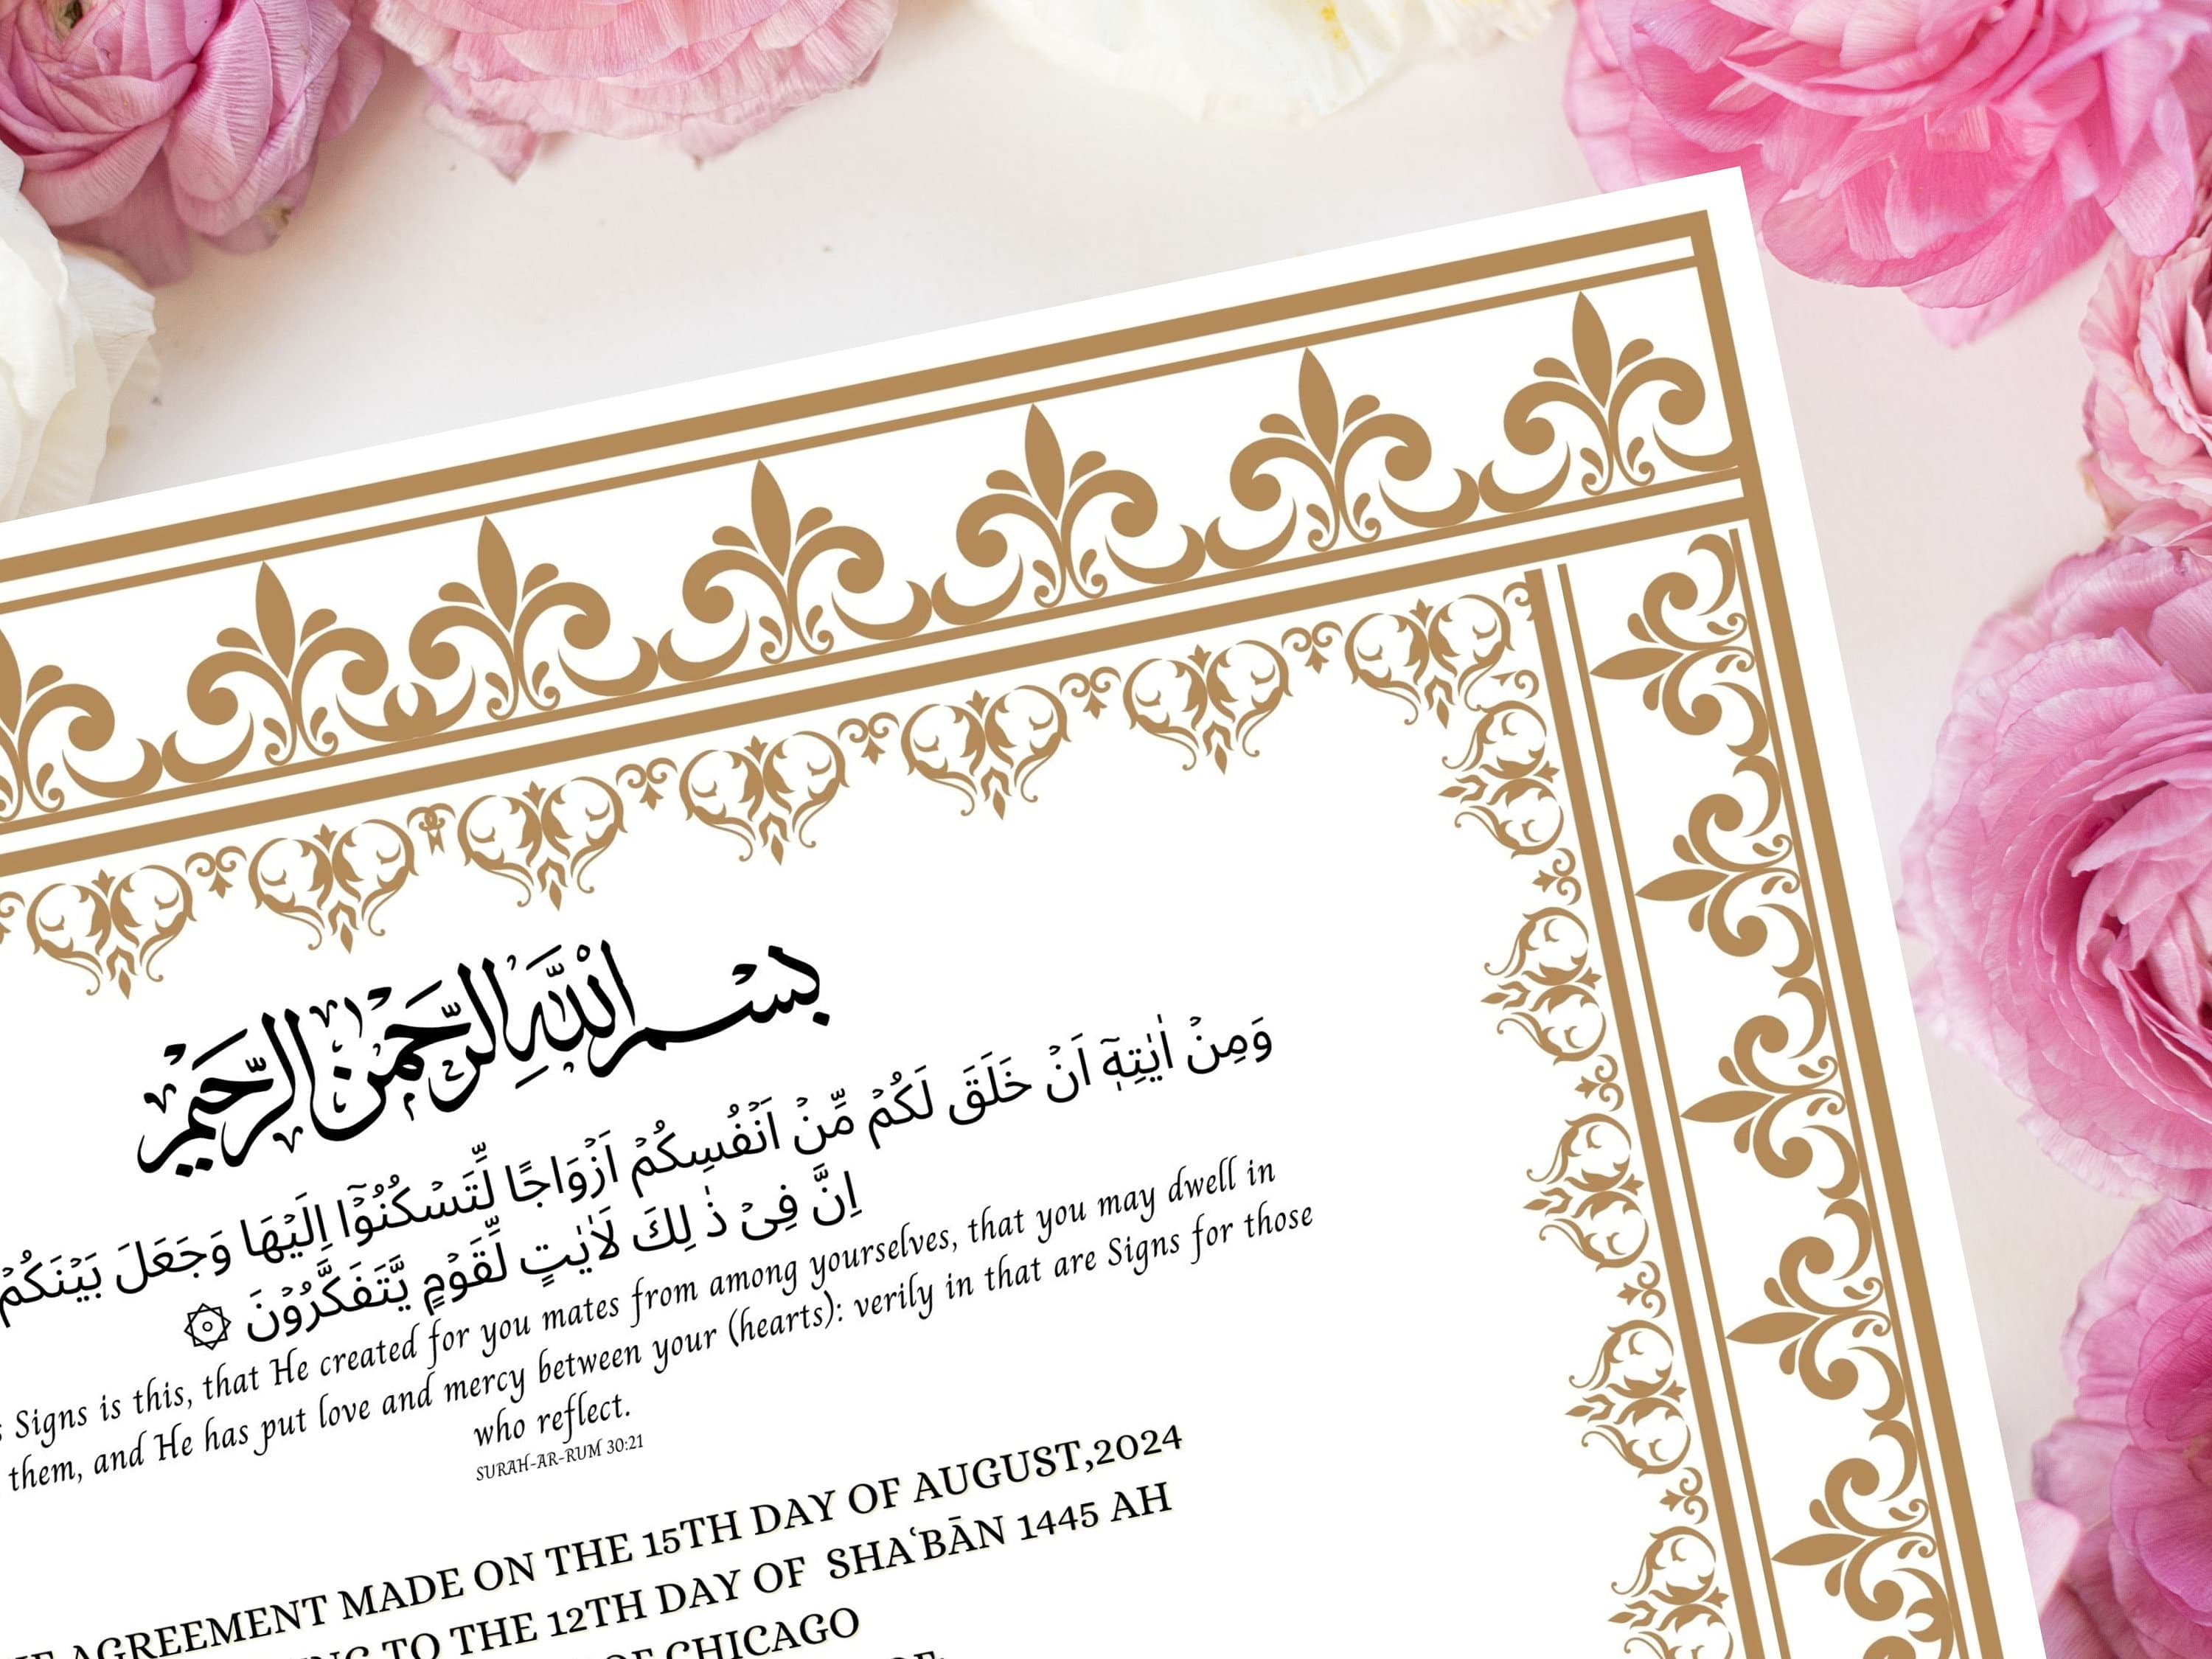 بِسْمِ اللَّهِ الرَّحْمٰنِ الرَّحِيْمِ
وَمِنْ اٰيٰتِهٖۤ اَنْ خَلَقَ لَكُمْ مِّنْ اَنْفُسِكُمْ اَزْوَاجًا لِّتَسْكُنُوْۤا اِلَيْهَا وَجَعَلَ بَيْنَكُمْ
اِنَّ فِىْ ذٰ لِكَ لَاٰيٰتٍ لِّقَوْمٍ يَّتَفَكَّرُوْنَ ۞
Signs is this, that He created for you mates from among yourselves, that you may dwell in
them, and He has put love and mercy between your (hearts): verily in that are Signs for those
who reflect.
SURAH-AR-RUM 30:21
AGREEMENT MADE ON THE 15TH DAY OF AUGUST,2024
TO THE 12TH DAY OF SHAʿBĀN 1445 AH
OF CHICAGO